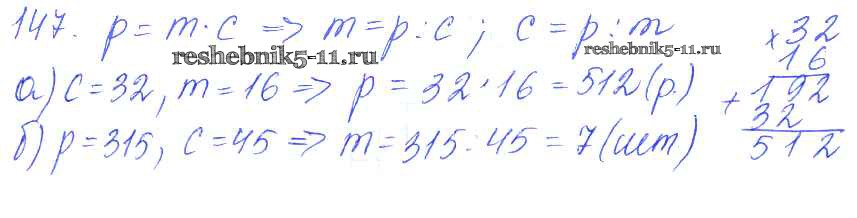 147. p = m·c => m = p:c ; c = p:m
reshebnik5-11.ru
reshebnik5-11.ru
а) c = 32, m = 16 => p = 32·16 = 512 (р.)
б) p = 315, c = 45 => m = 315:45 = 7 (шт)
× 32
16
+ 192
32
512